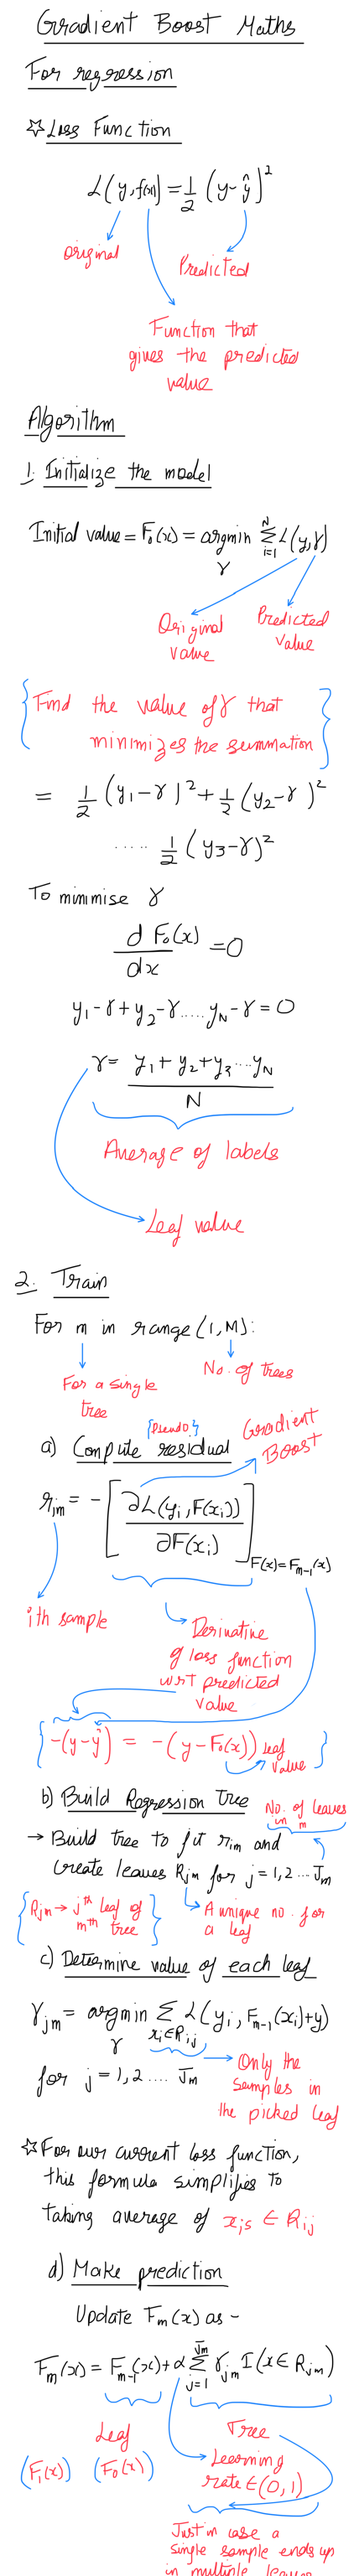 Gradient Boost Maths
For regression
☆ Loss Function
L(y, f(x)) = 1/2 (y-ŷ)²
Original
Predicted
Function that
gives the predicted
value
Algorithm
1. Initialize the model
Initial value = F₀(x) = argmin Σ L(y,γ)
N
i=1
γ
Original
Value
Predicted
Value
{Find the value of γ that
minimizes the summation}
= 1/2 (y₁-γ)² + 1/2 (y₂-γ)²
..... 1/2 (y₃-γ)²
To minimise γ
d F₀(x)/dx = 0
y₁-γ+y₂-γ.....y_N-γ = 0
γ = y₁+y₂+y₃...y_N / N
Average of labels
Leaf value
2. Train
For m in range(1,M):
For a single
tree
No. of trees
{Pseudo}
a) Compute residual
Gradient
Boost
r_im = -[∂L(y_i, F(x_i)) / ∂F(x_i)] F(x)=F_m-1(x)
ith sample
Derivative
of loss function
wrt predicted
value
{-(y-ŷ) = -(y-F₀(x)) Leaf
value}
b) Build Regression tree
No. of leaves
in m
→ Build tree to fit r_im and
create leaves R_jm for j=1,2...J_m
{R_jm → jth leaf of
mth tree}
A unique no. for
a leaf
c) Determine value of each leaf
γ_jm = argmin Σ L(y_i, F_m-1(x_i)+γ)
γ x_i∈R_ij
for j=1,2.... J_m
Only the
samples in
the picked leaf
☆ For our current loss function,
this formula simplifies to
taking average of x_is ∈ R_ij
d) Make prediction
Update F_m(x) as -
F_m(x) = F_m-1(x) + α Σ γ_jm I(x∈R_jm)
J_m
j=1
Leaf
Tree
(F₁(x)) (F₀(x))
Learning
rate ∈(0,1)
Just in case a
single sample ends up
in multiple leaves